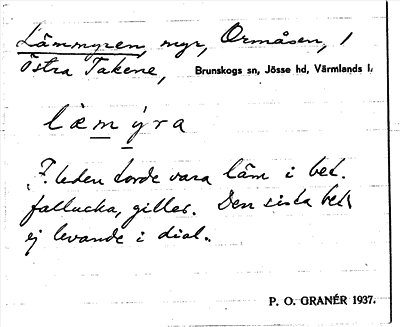 Lämmyren, myr, Ormåsen, 1
Östra Takene, Brunskogs sn, Jösse hd, Värmlands l.
læmýra
F. leden torde vara läm i bet.
fallucka, giller. Den sista bet.
ej levande i dial.
P. O. GRANÉR 1937.